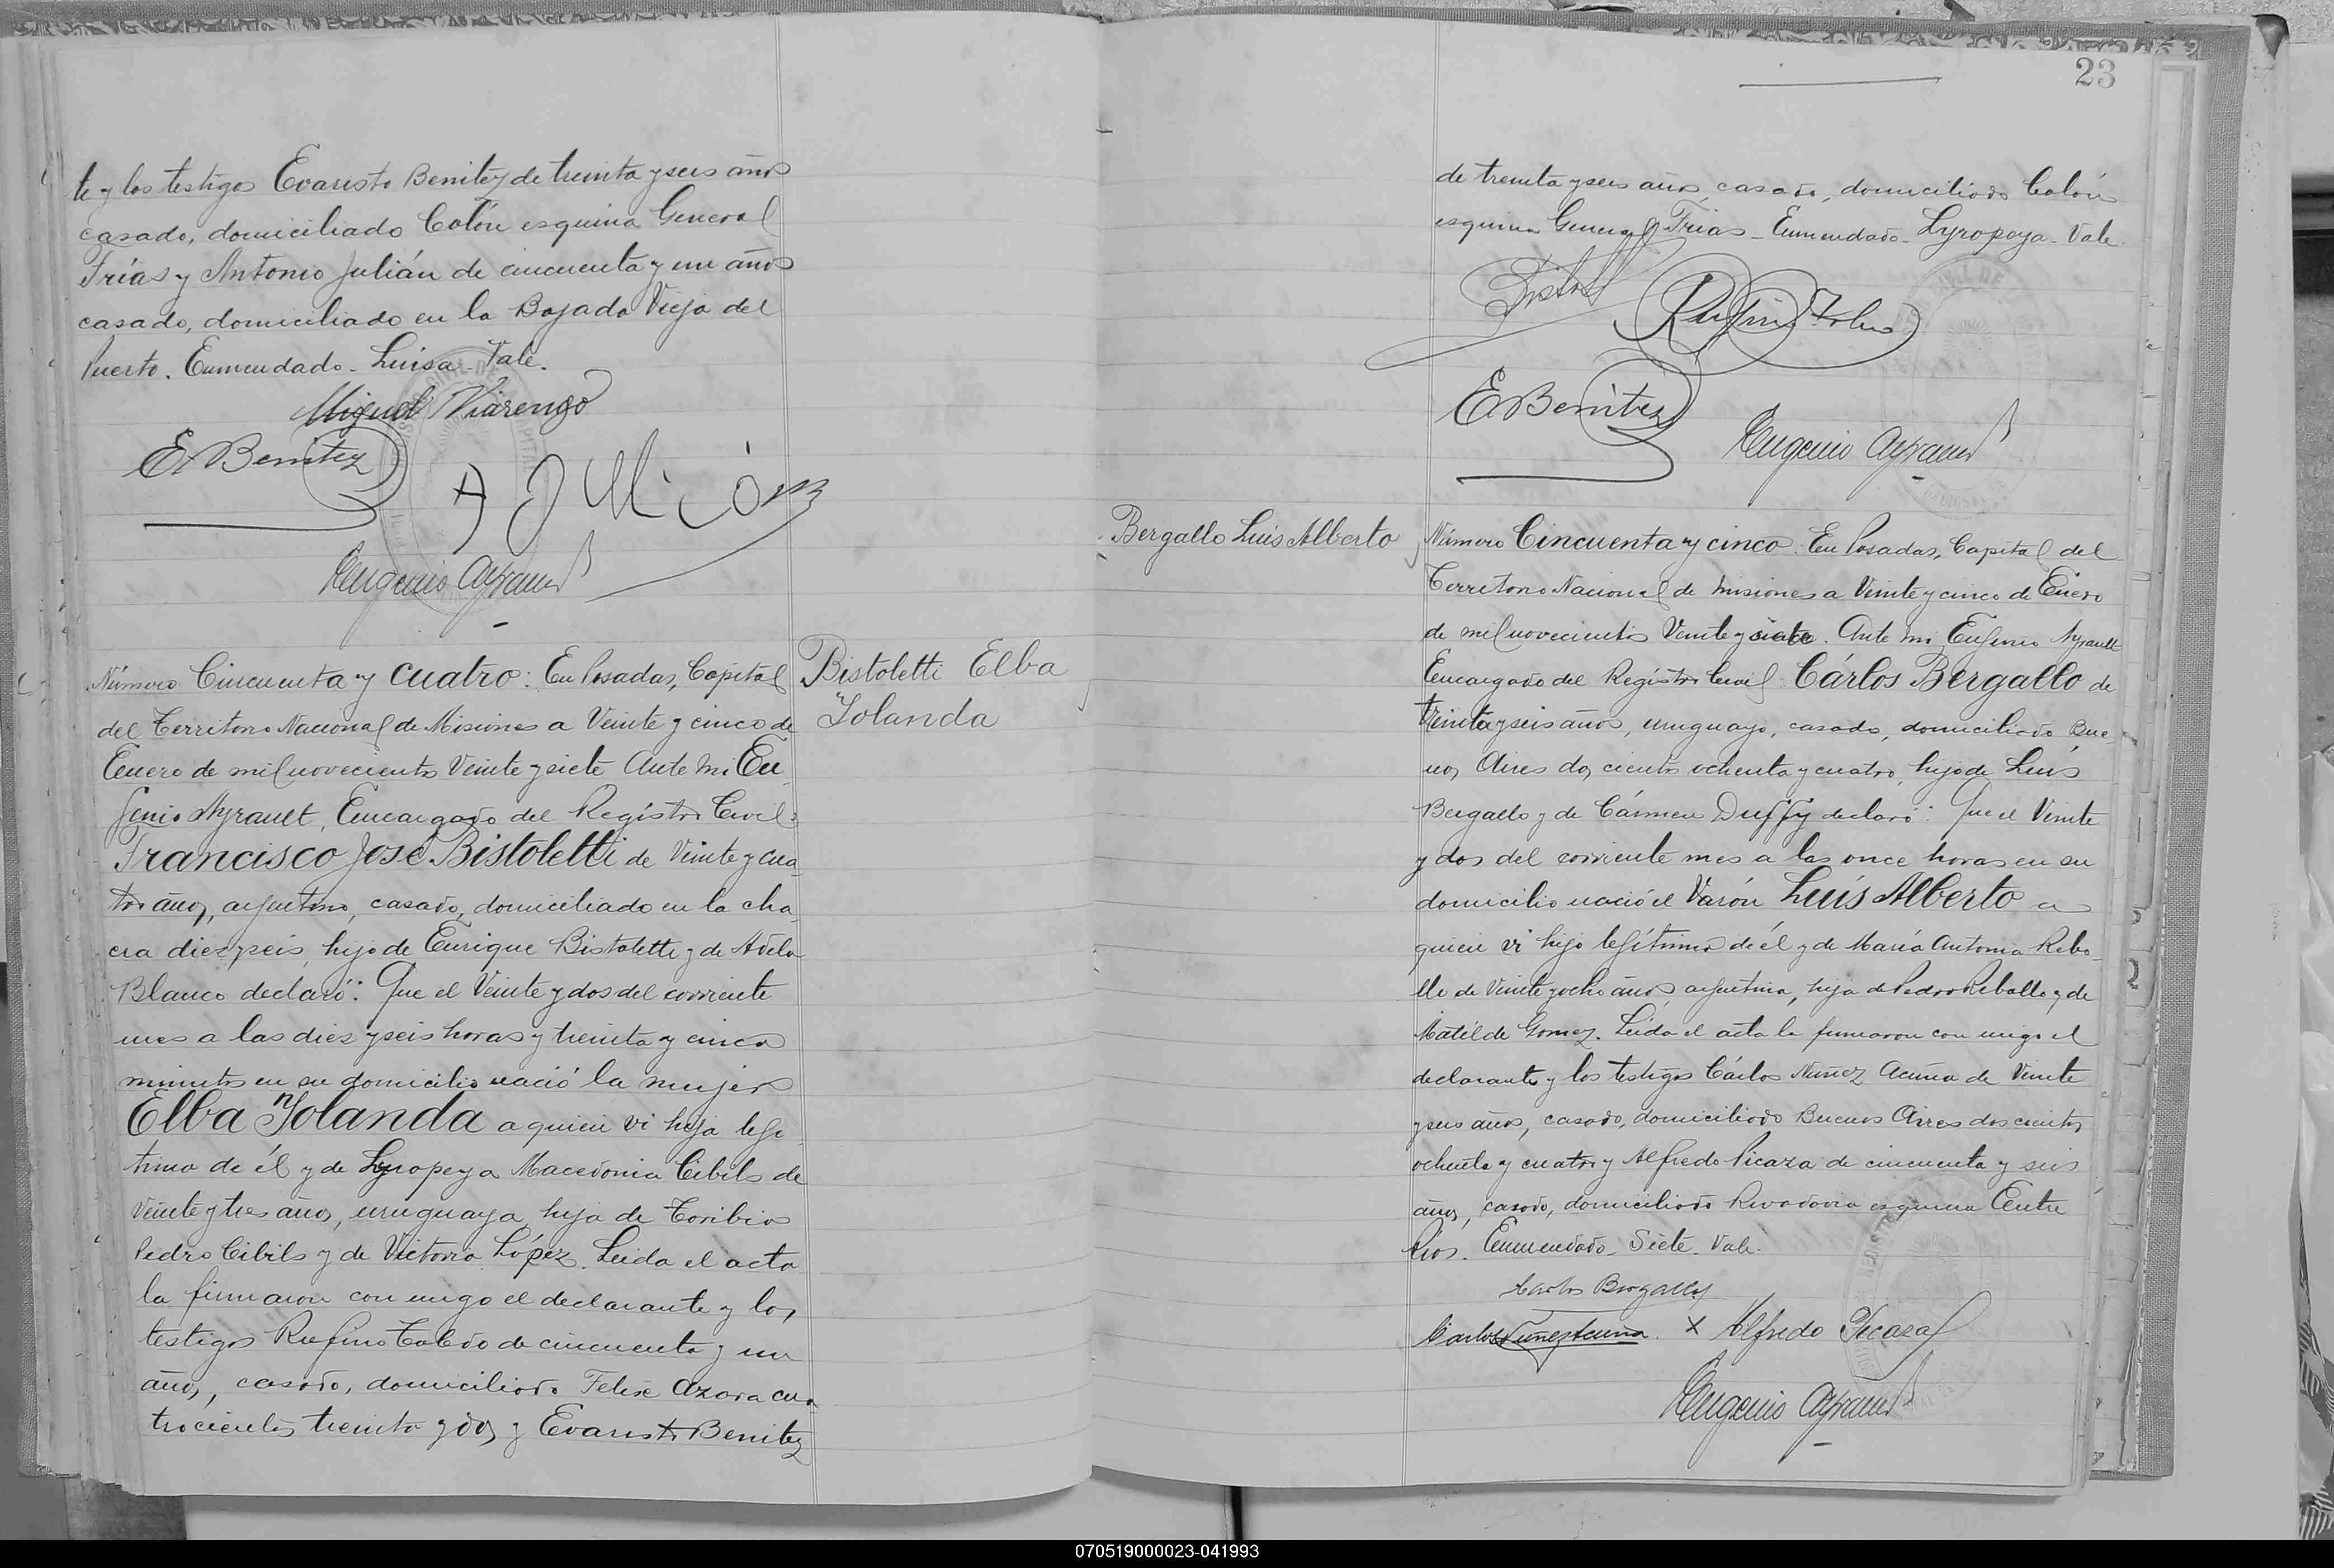 te y los testigos Evaristo Benitez de treinta y seis años
casado, domiciliado Colón esquina General
Frías y Antonio Julián de cincuenta y un años
casado, domiciliado en la Bajada Vieja del
Puerto. Enmendado - Luisa - Vale.
Miguel Viarengo
E Benitez
A Julián
Eugenio Ayrault
Número Cincuenta y cuatro: En Posadas, Capital
del Territorio Nacional de Misiones a Veinte y cinco de
Enero de mil novecientos Veinte y siete Ante mi Eu
genio Ayrault, Encargado del Registro Civil:
Francisco José Bistoletti de Veinte y cua
tro años, argentino, casado, domiciliado en la cha
cra diez y seis, hijo de Enrique Bistoletti y de Adela
Blanco declaró: Que el Veinte y dos del corriente
mes a las diez y seis horas y treinta y cinco
minutos en su domicilio nació la mujer
Elba Yolanda a quien vi hija legí
tima de él y de Lyropeya Macedonia Cibils de
Veinte y tres años, uruguaya, hija de Toribio
Pedro Cibils y de Victoria López. Leida el acta
la firmaron con migo el declarante y los
testigos Rufino Toledo de cincuenta y un
años, casado, domiciliado Felix Azara cua
trocientos treinta y dos y Evaristo Benitez
Bistoletti Elba
Yolanda
23
de treinta y seis años, casado, domiciliado Colón
esquina General Frías - Enmendado - Lyropeya - Vale.
E Benitez
Eugenio Ayrault
Bergallo Luis Alberto
Número Cincuenta y cinco: En Posadas, Capital del
Territorio Nacional de Misiones a Veinte y cinco de Enero
de mil novecientos Veinte y siete. Ante mi Eugenio Ayrault
Encargado del Registro Civil: Cárlos Bergallo de
treinta y seis años, uruguayo, casado, domiciliado Bue
nos Aires dos cientos ochenta y cuatro, hijo de Luis
Bergallo y de Cármen Duffy declaró: Que el Veinte
y dos del corriente mes a las once horas en su
domicilio nació el Varón Luís Alberto a
quien vi hijo legítimo de él y de María Antonia Rebo
llo de Veinte y ocho años, argentina, hija de Pedro Rebollo y de
Matilde Gomez. Leida el acta la firmaron con migo el
declarante y los testigos Cárlos Nuñez Acuña de Veinte
y seis años, casado, domiciliado Buenos Aires dos cientos
ochenta y cuatro y Alfredo Picaza de cincuenta y seis
años, casado, domiciliado Rivadavia esquina Entre
Rios. Enmendado - Siete - Vale.
Carlos Bergallo
Carlos Nuñez Acuña. X Alfredo Picaza
Eugenio Ayrault
070519000023-041993